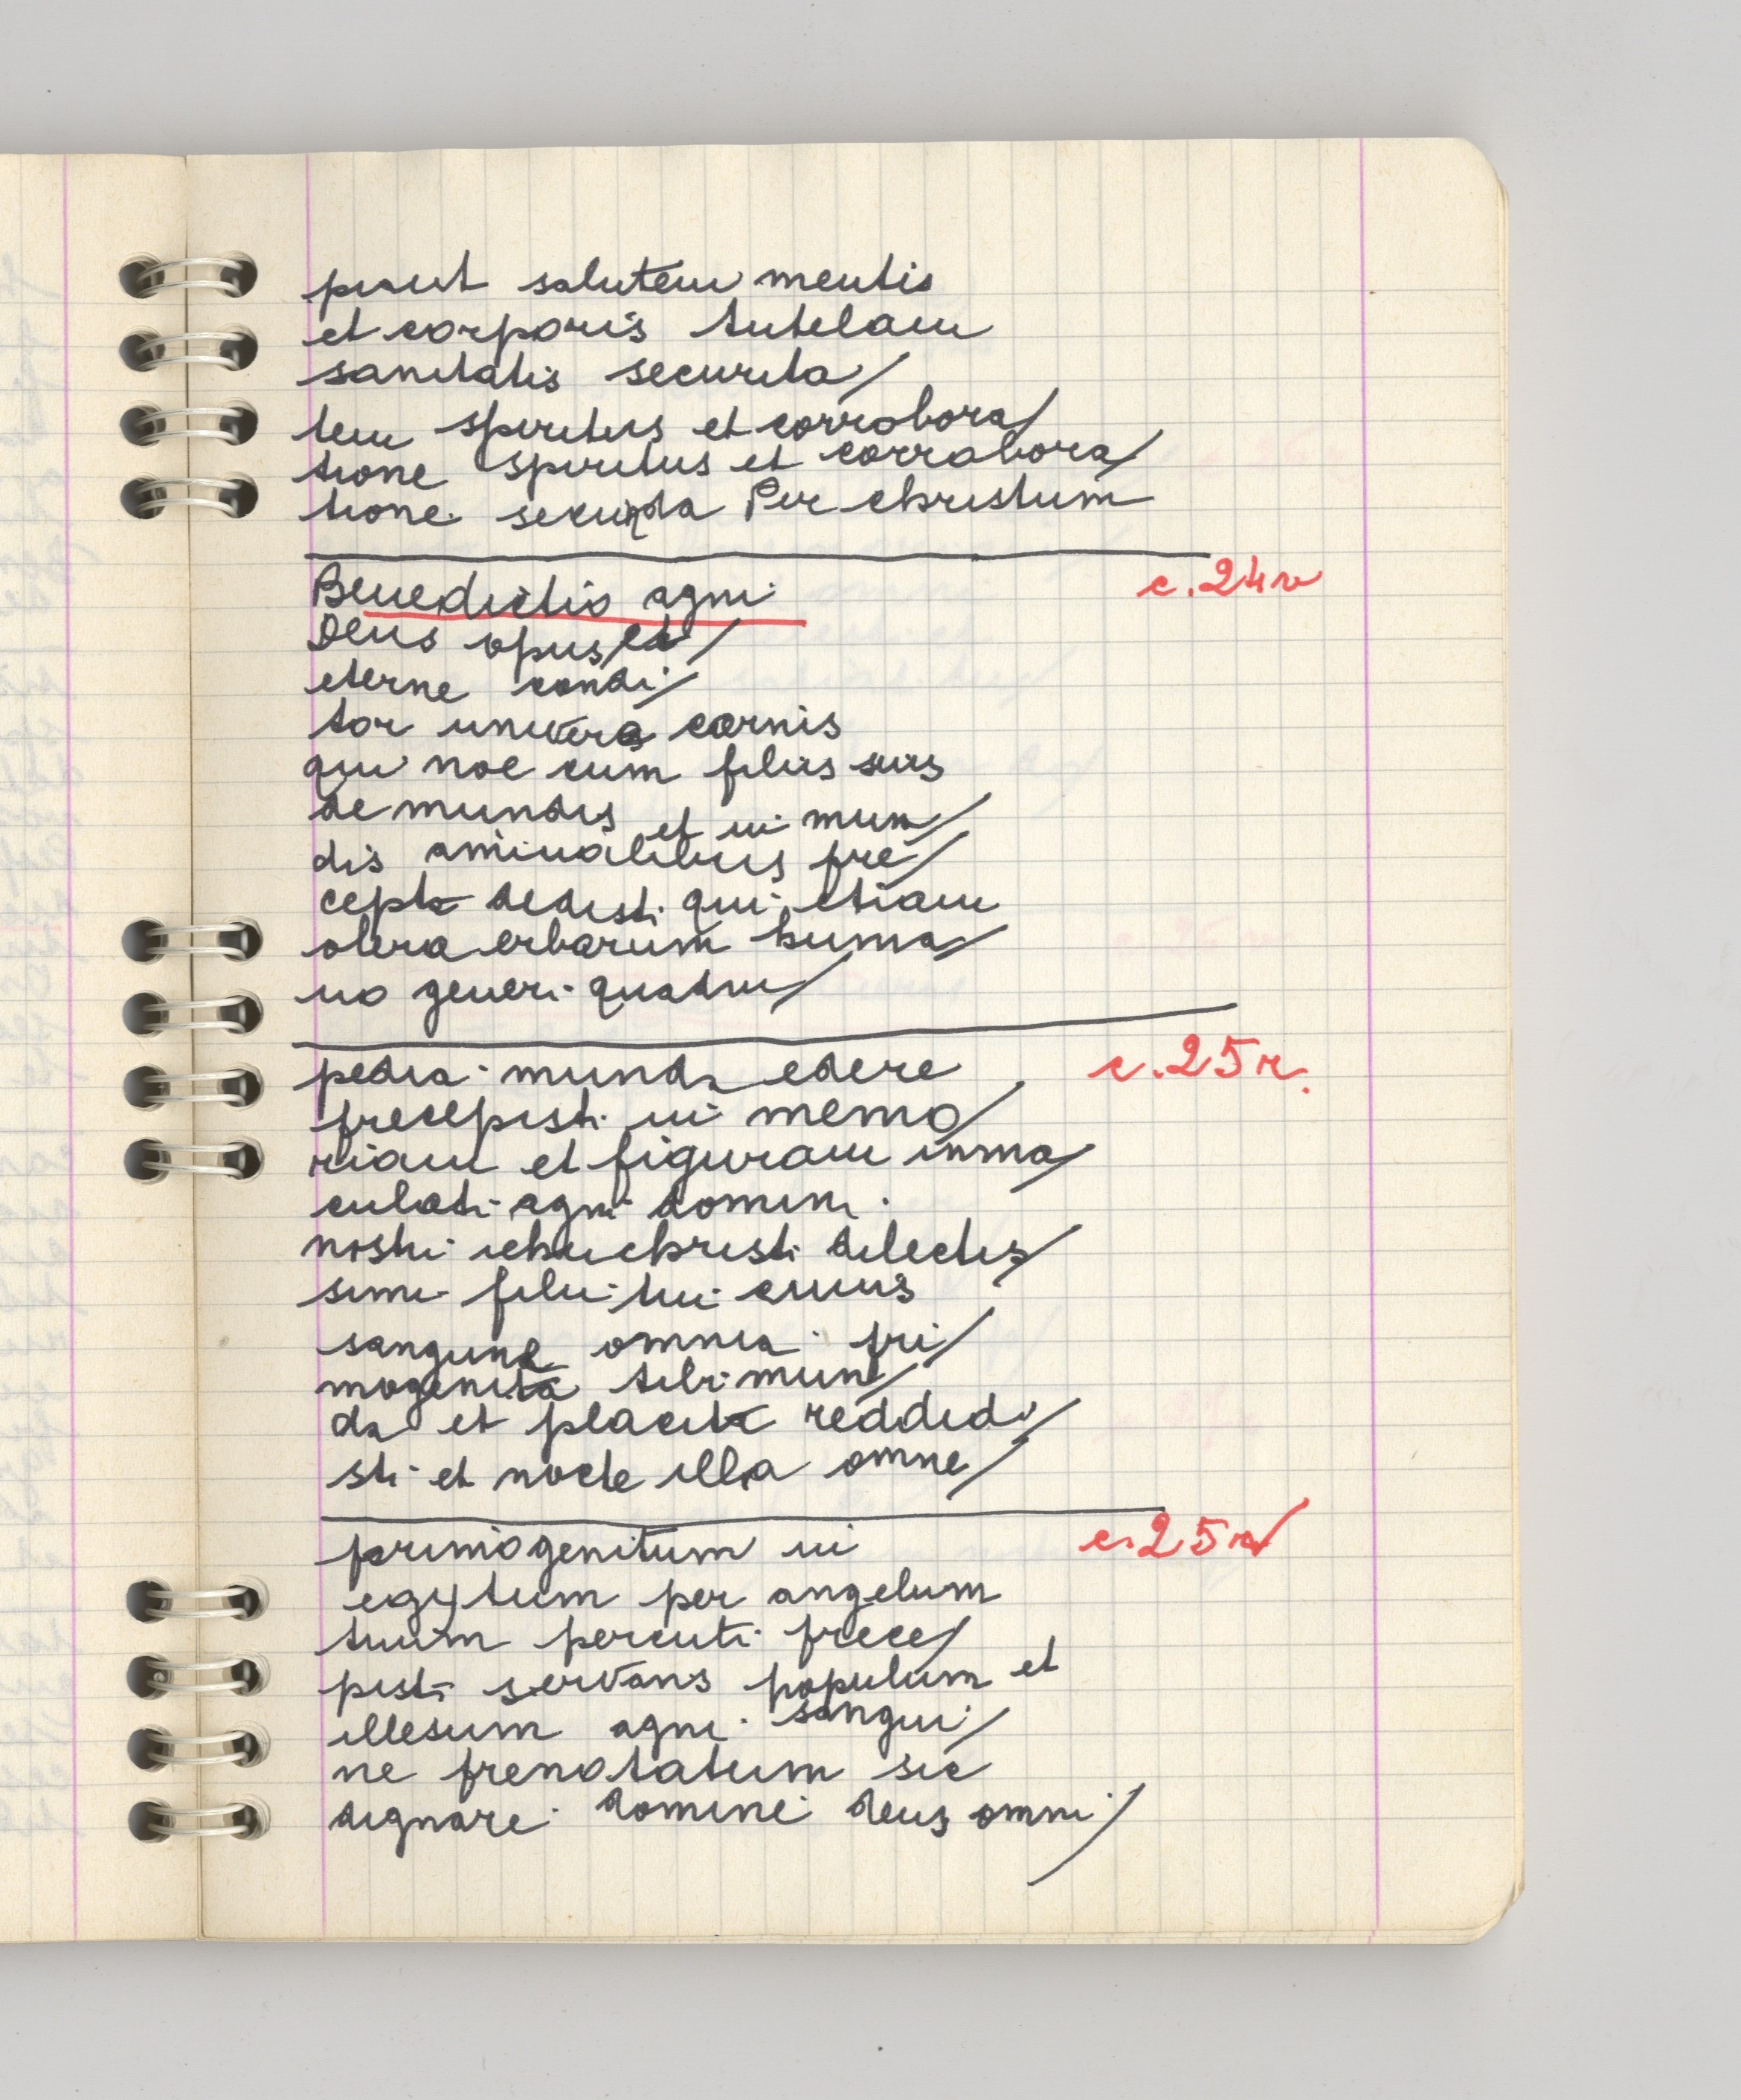 piant salutem mentis
et corporis tutelam
sanitatis securita/
tem spiritus et corrobora/
tione spiritus et corrobora/
tione secunda Per christum
c. 24v
Benedictio agni
Deus opus et/
eterne condi/
tor univers carnis
qui noe cum filiis suis
de mundis et in mun/
dis animalibus pre/
cepta dedisti qui etiam
olera erbarum huma/
no generi quadru/
c. 25r.
pedia munda edere
precepisti in memo/
riam et figuram inma/
culati agni domini
nostri iehu christi dilectis/
simi filii tui cuius
sanguine omnia pri/
mogenita tibi mun/
da et placita reddidi/
sti et nocte illa omne/
c. 25v
primogenitum in
egytum per angelum
tuum percuti prece/
pisti servans populum et
illesum agni sangui/
ne prenotatum sic
dignare domine deus omni/